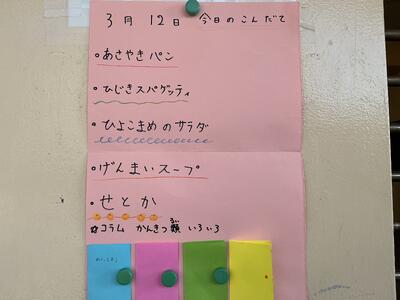 3月 12日 今日のこんだて
・あさやきパン
・ひじきスパゲッティ
・ひよこまめのサラダ
・げんまいスープ
・せとか
✩コラム かんきつ類 いろいろ
るい